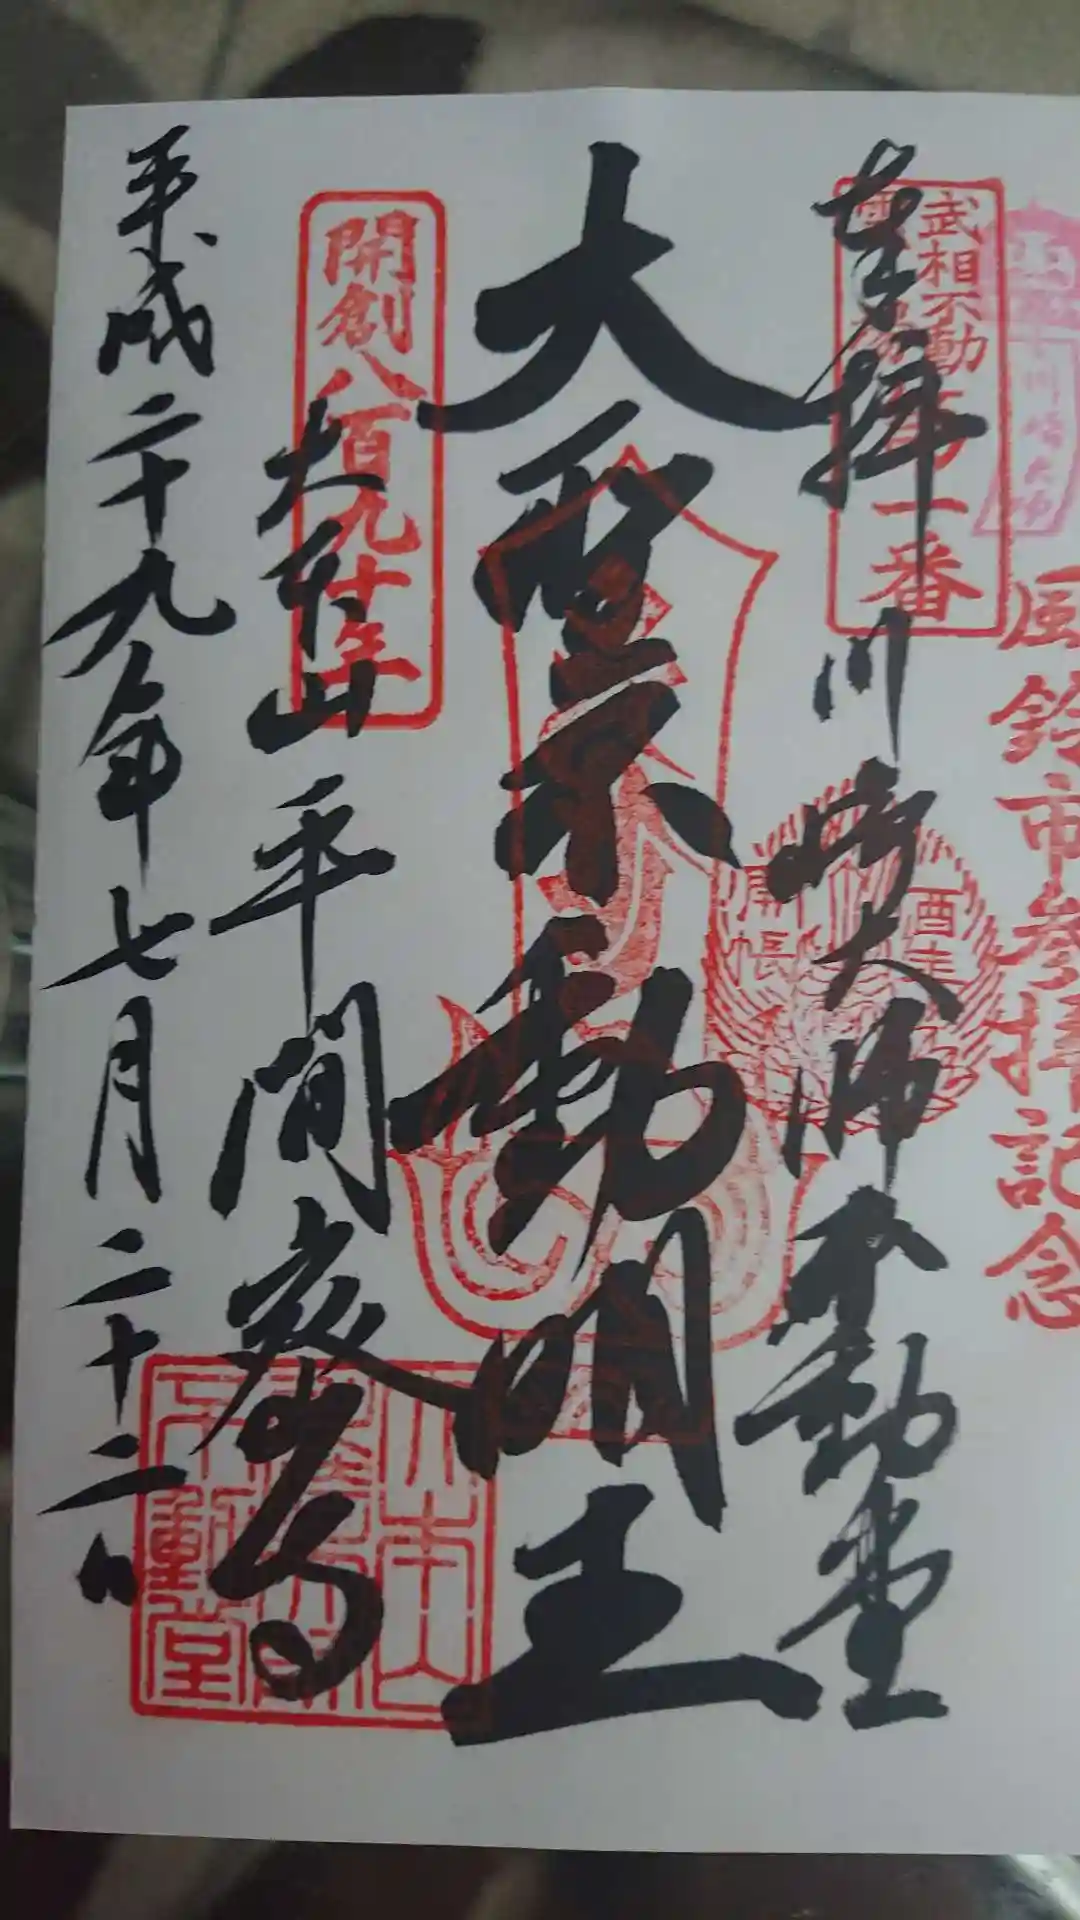 川崎大師
風鈴市参拝記念
武相不動
一番
奉拝 川崎大師不動堂
酉年
開帳
大聖不動明王
開創八百九十年
大本山 平間寺
平成二十九年七月二十二日
大本山
不動堂